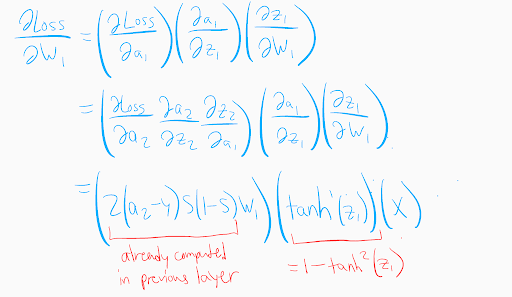 ∂Loss/∂W₁ = (∂Loss/∂a₁)(∂a₁/∂z₁)(∂z₁/∂W₁)
= (∂Loss/∂a₂ ∂a₂/∂z₂ ∂z₂/∂a₁)(∂a₁/∂z₁)(∂z₁/∂W₁)
= (2(a₂-y)S(1-S)W₁)(tanh'(z₁))(X)
already computed
in previous layer
= 1 - tanh²(z₁)